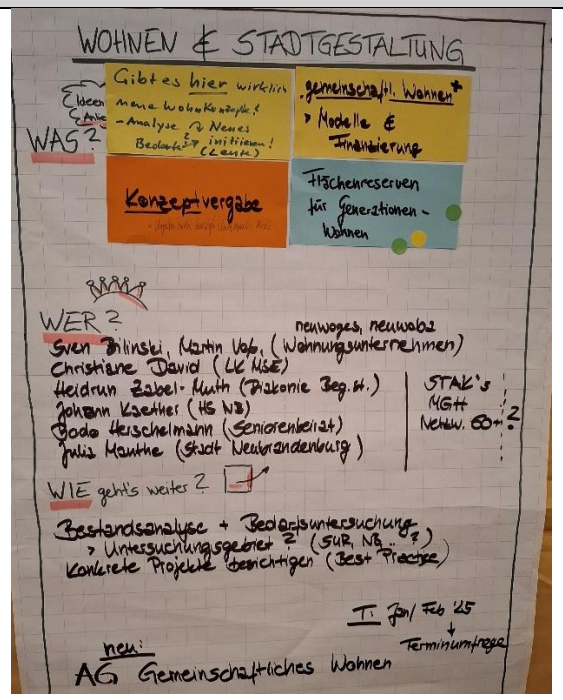 WOHNEN & STADTGESTALTUNG
Ideen
WAS?
Gibt es hier wirklich
neue Wohnkonzepte?
- Analyse Neues
Bedarfe initiieren!
(Leute)
"gemeinschaftl. Wohnen"
> Modelle &
Finanzierung
Konzeptvergabe
Flächenreserven
für Generationen-
Wohnen
WER?
neuwoges, neuwoba
Sven Bilinski, Martin Voß, (Wohnungsunternehmen)
Christiane David (LK MSE)
Heidrun Zabel-Muth (Diakonie Beg.st.)
Johann Kaether (HS NB)
Bodo Herschelmann (Seniorenbeirat)
Julia Manthe (Stadt Neubrandenburg)
STAK's
MGH
Netzw. 60+ ?
WIE geht's weiter?
Bestandsanalyse + Bedarfsuntersuchung
> Untersuchungsgebiet? (SUR, NB, .. ?)
Konkrete Projekte besichtigen (Best Practice)
T: Jan/Feb '25
Terminumfrage
neu:
AG Gemeinschaftliches Wohnen